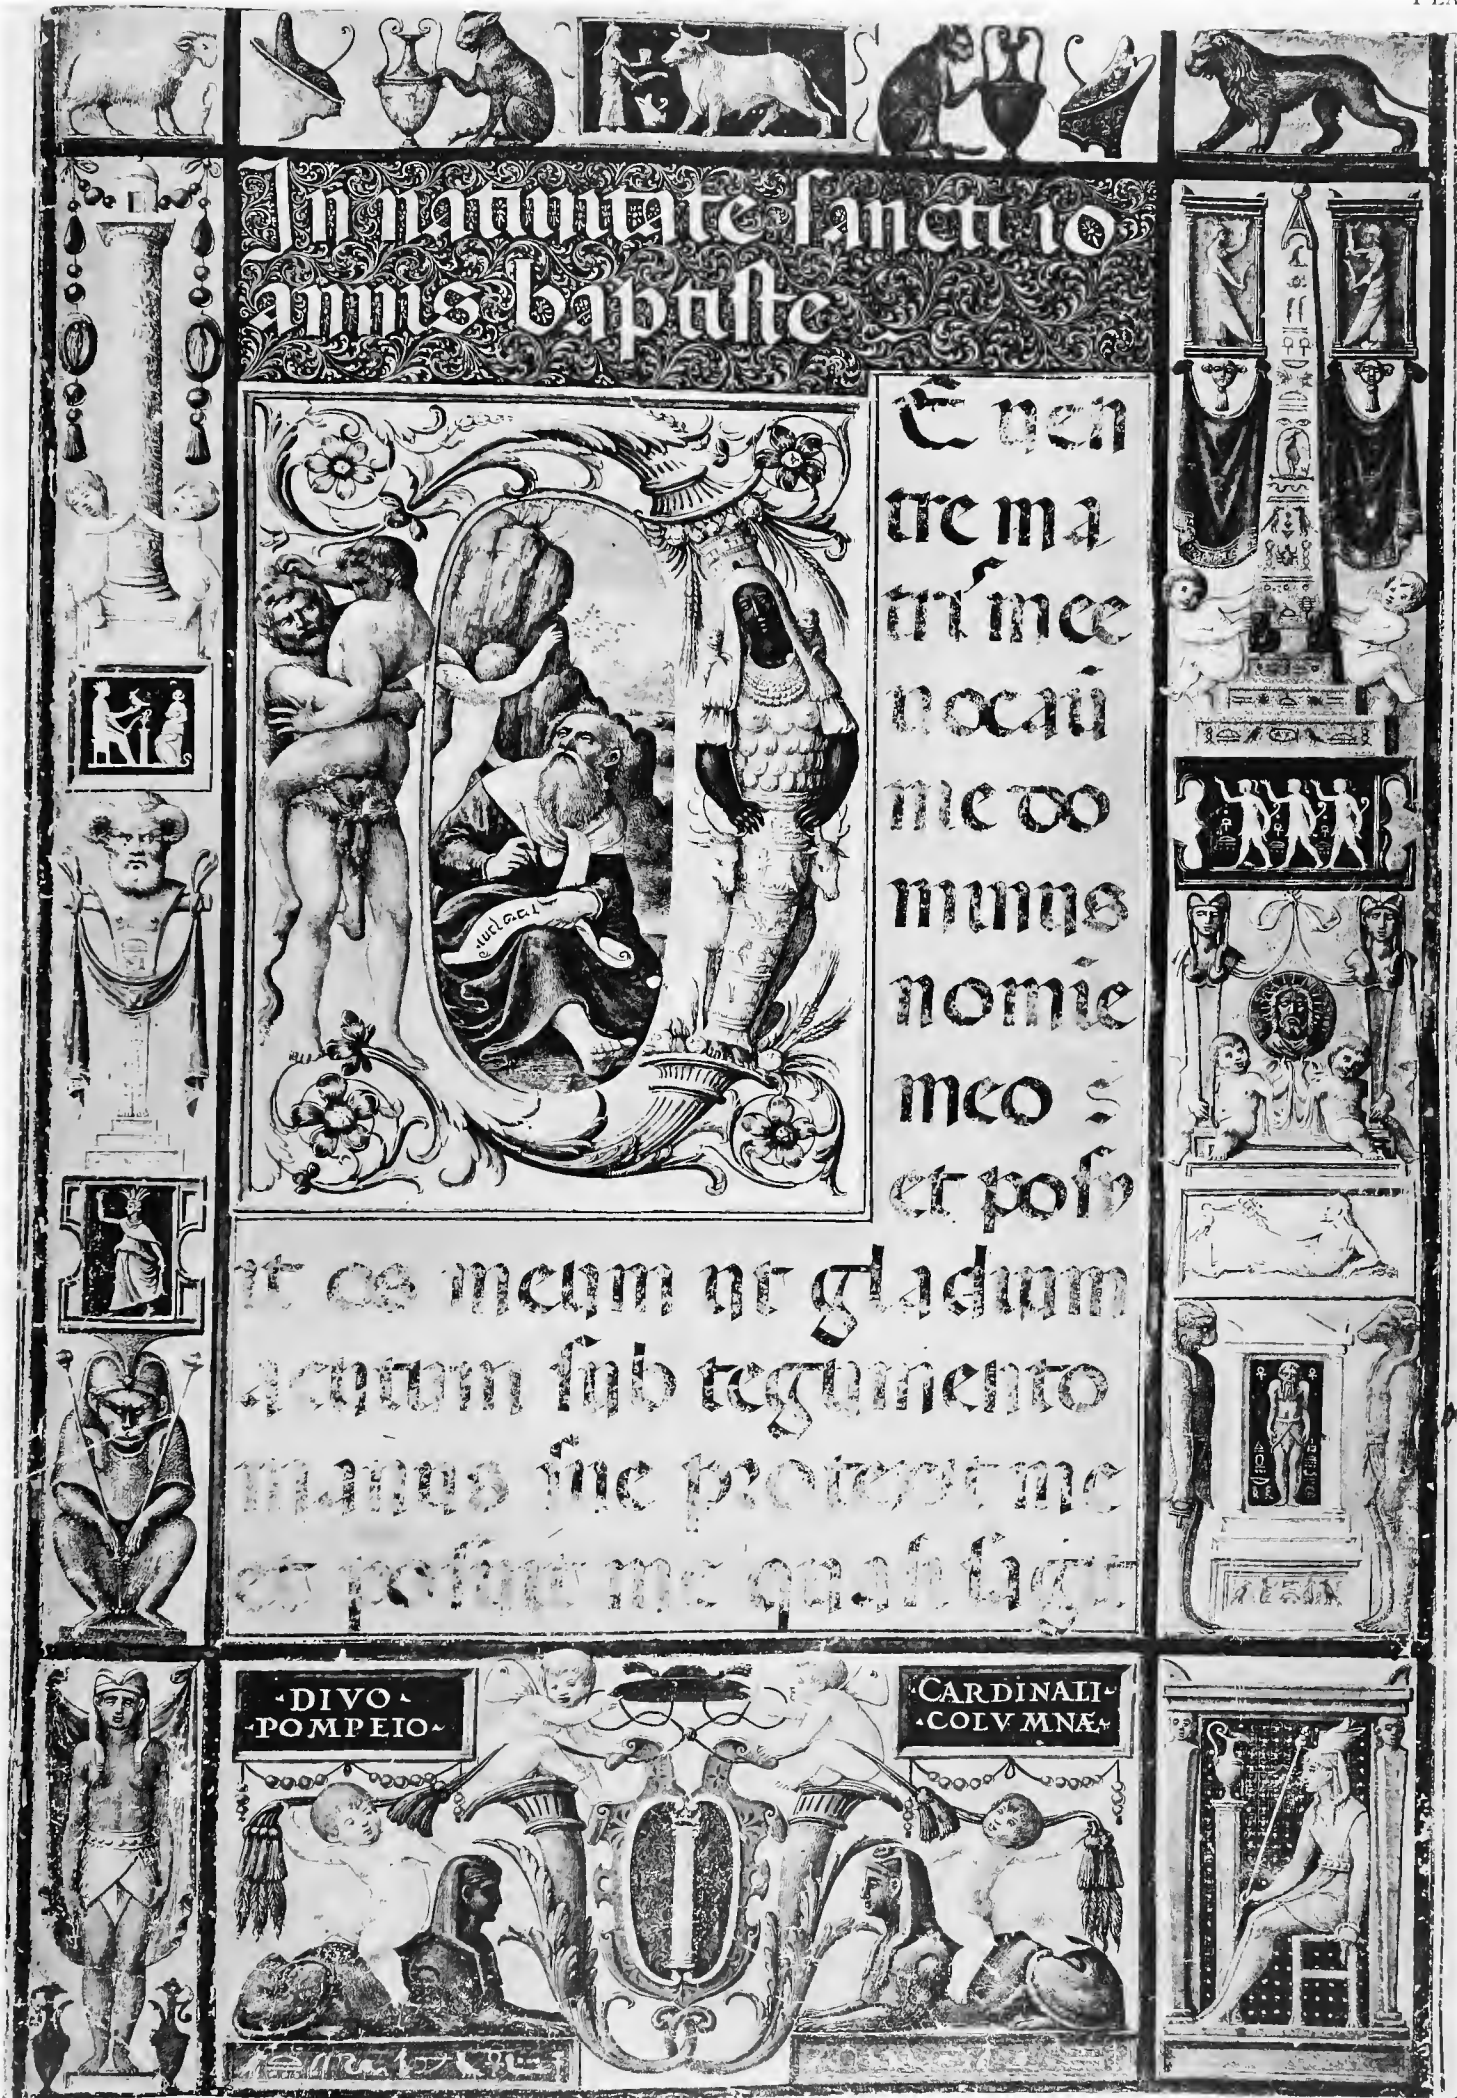 In natiuitate sancti io
annis baptiste
E uen
tre ma
tris mee
uocau
me do
minus
nomie
meo
et posu
it os meum ut gladium
acutum sub tegumento
manus sue protexit me
et posuit me quasi sagit
·DIVO·
·POMPEIO·
·CARDINALI·
·COLVMNÆ·